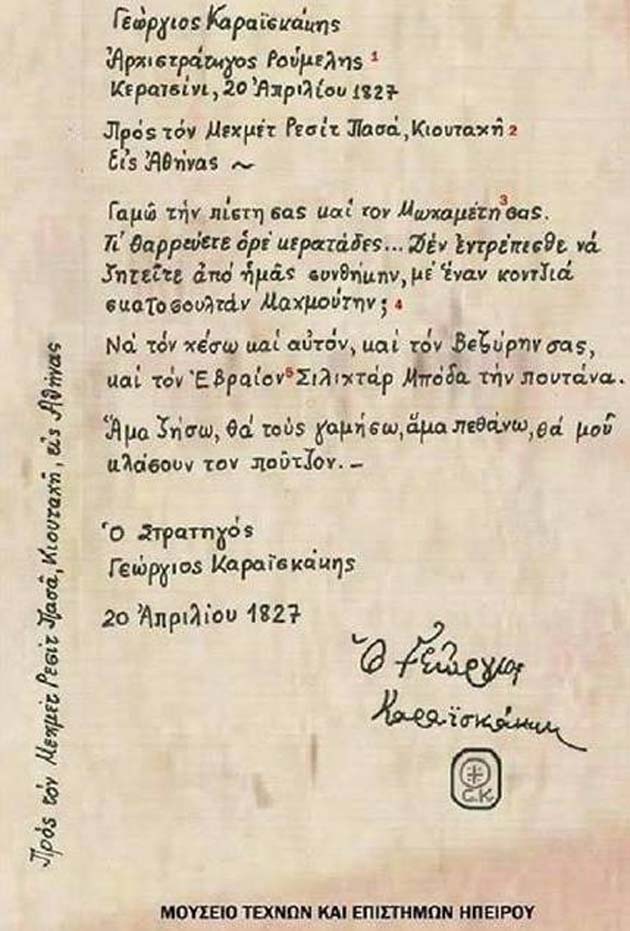 Γεώργιος Καραϊσκάκης
Ἀρχιστράτηγος Ρούμελης 1
Κερατσίνι, 20 Ἀπριλίου 1827
Πρός τόν Μεχμέτ Ρεσίτ Πασά, Κιουταχῆ 2
Εἰς Ἀθήνας ~
Γαμῶ τήν πίστη σας καί τον Μωχαμέτη 3 σας.
Τί θαρρεύετε ὀρέ κερατάδες... Δέν ἐντρέπεσθε νά
ζητεῖτε ἀπό ἡμᾶς συνθήκην, μέ ἕναν κοντζιά
σκατοσουλτάν Μαχμούτην; 4
Νά τόν χέσω καί αὐτόν, καί τόν Βεζύρην σας,
καί τόν Ἑβραίον 5 Σιλιχτάρ Μπόδα τήν πουτάνα.
Ἅμα ζήσω, θά τούς γαμήσω, ἅμα πεθάνω, θά μοῦ
κλάσουν τον ποῦτζον. –
Ὁ Στρατηγός
Γεώργιος Καραϊσκάκης
20 Ἀπριλίου 1827
Ὁ Γεώργιος
Καραϊσκάκης
G.K.
Πρός τόν Μεχμέτ Ρεσίτ Πασᾶ, Κιουταχῆ, εἰς Ἀθήνας
ΜΟΥΣΕΙΟ ΤΕΧΝΩΝ ΚΑΙ ΕΠΙΣΤΗΜΩΝ ΗΠΕΙΡΟΥ